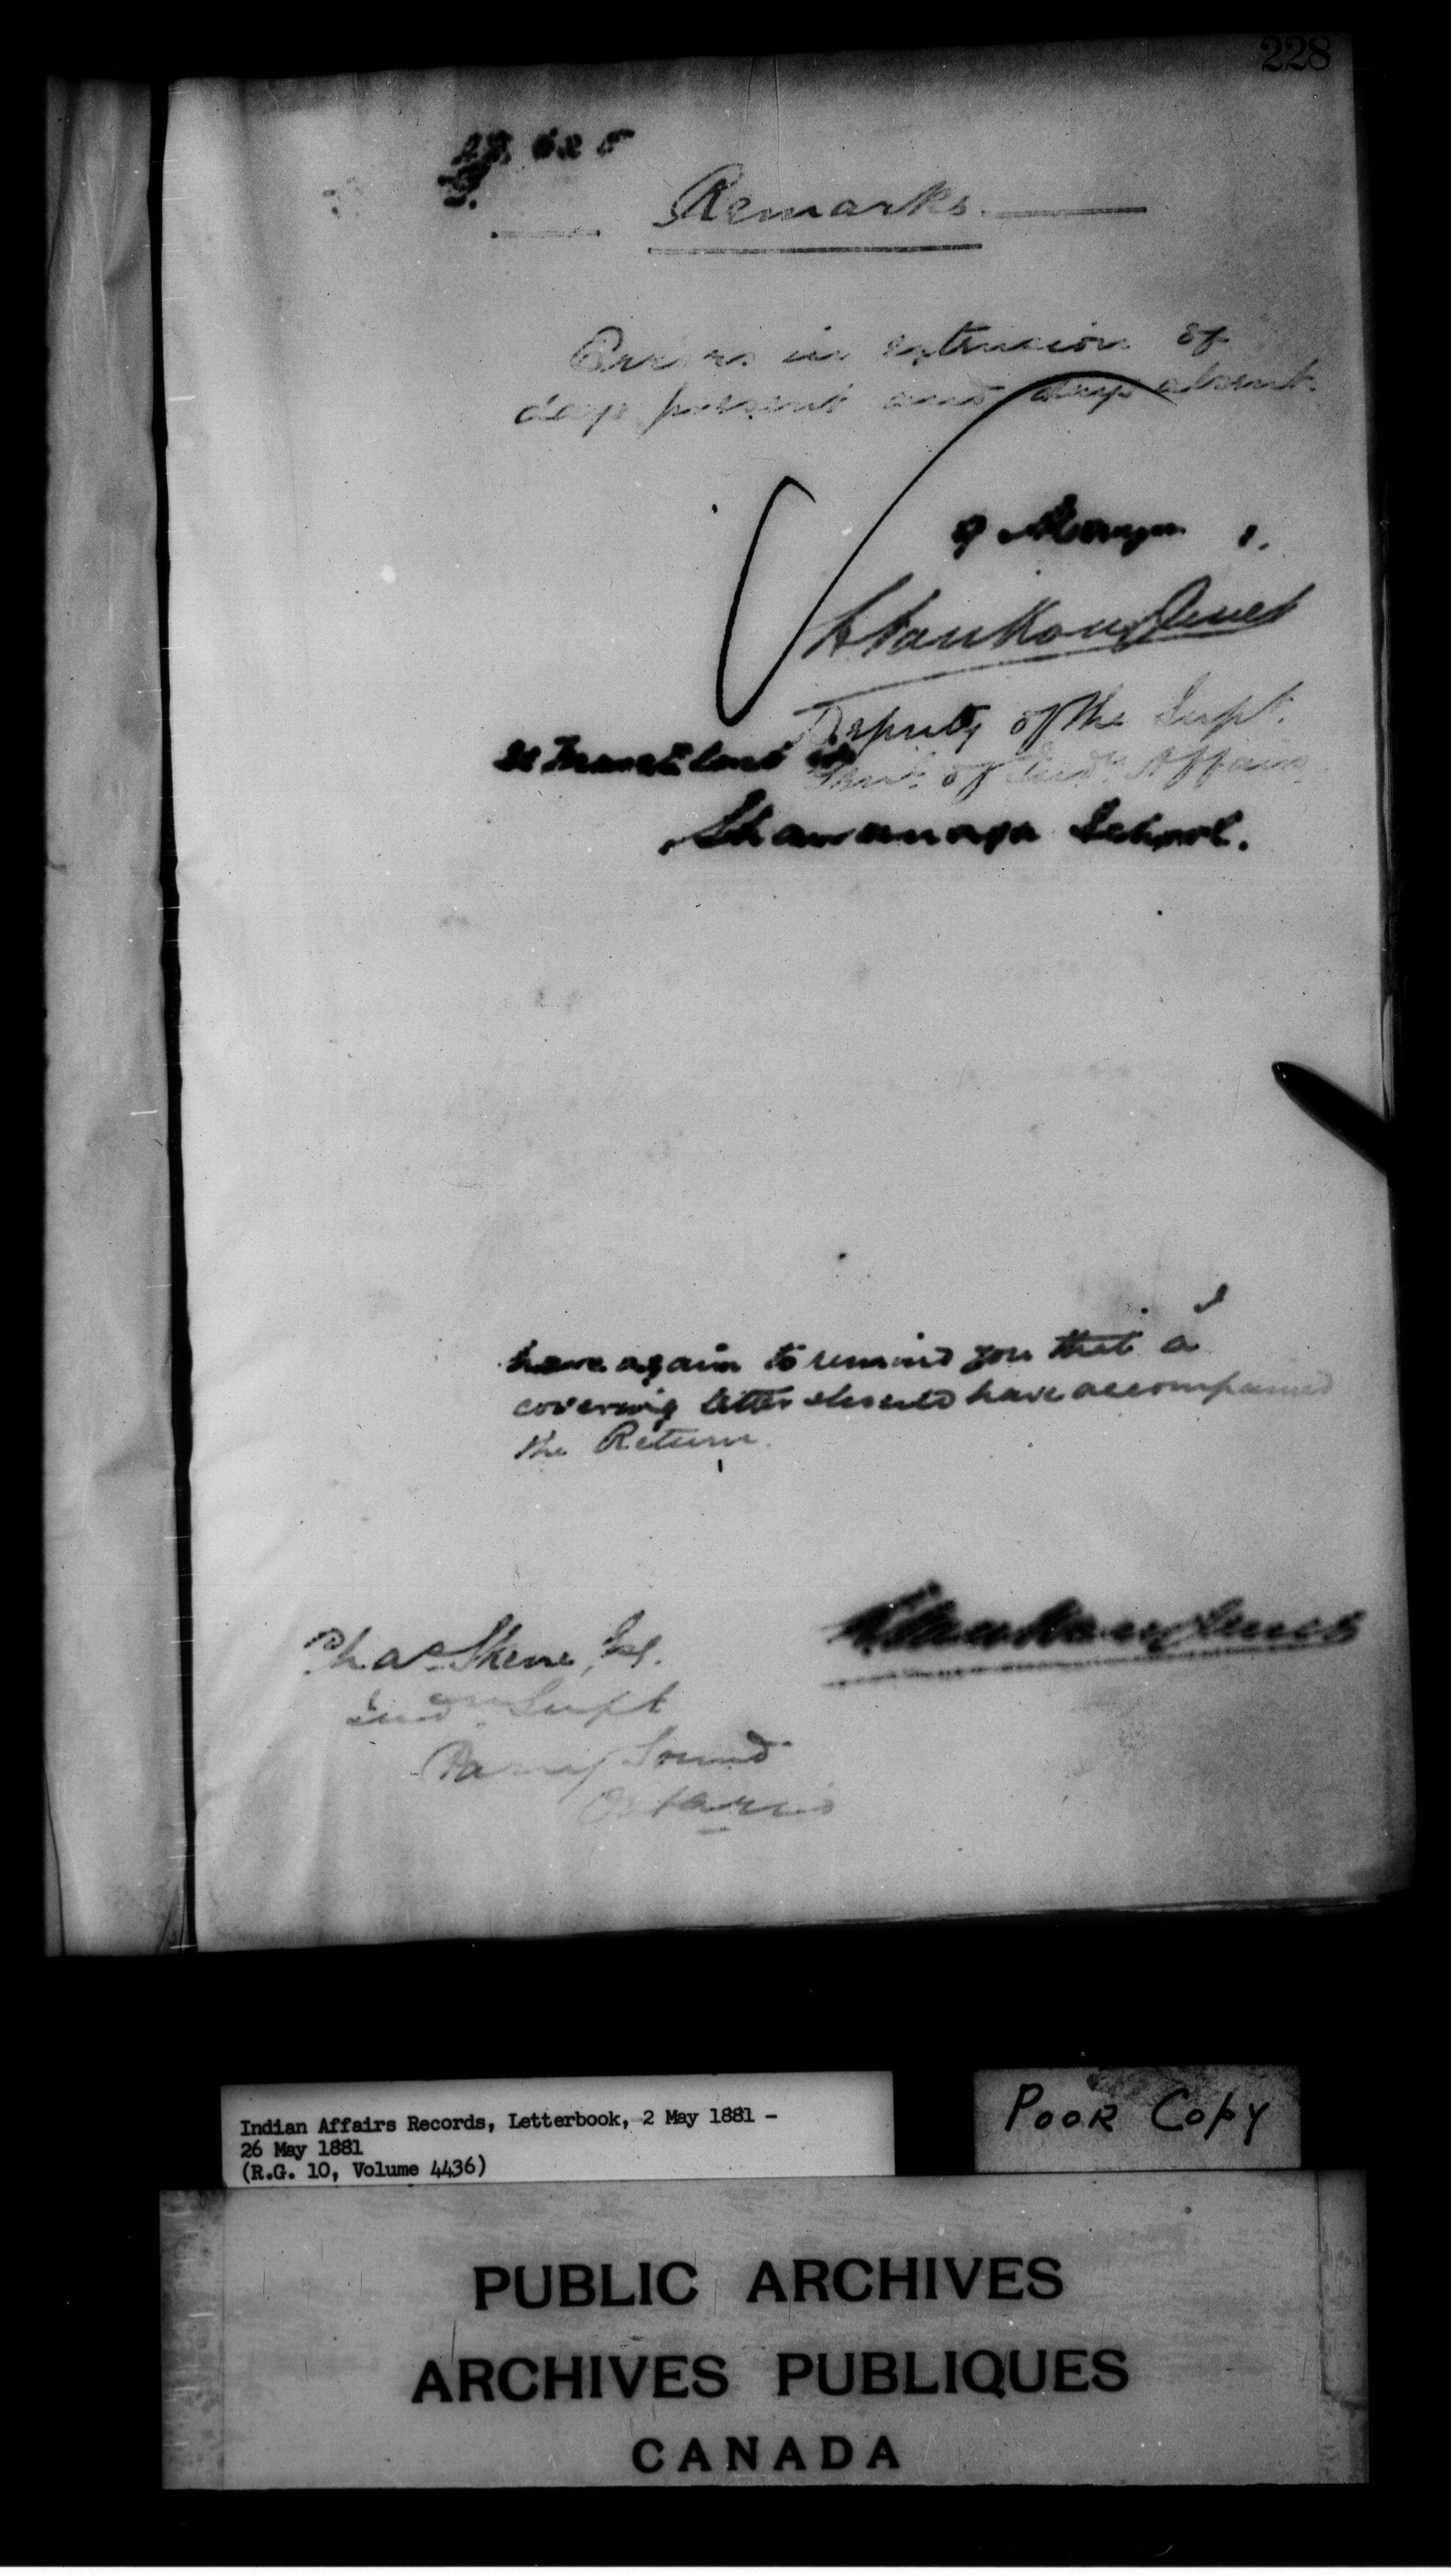 228
Remarks.
Errors in extension of
days present and days absent.
9 May 1.
L VanKoughnet
Deputy of the Supt.
Genl. of Indn. Affairs
Shawanaga School.
I
have again to remind you that a
covering letter should have accompanied
the Return.
L VanKoughnet
Chas. Skene, Esq.
Indn Supt
Parry Sound
Ontario
Indian Affairs Records, Letterbook, 2 May 1881 -
26 May 1881
(R.G. 10, Volume 4436)
POOR COPY
PUBLIC ARCHIVES
ARCHIVES PUBLIQUES
CANADA